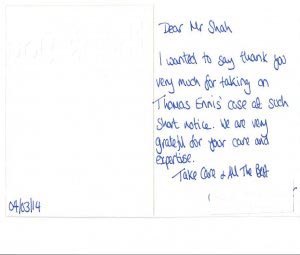 Dear Mr Shah
I wanted to say thank you
very much for taking on
Thomas Ennis' case at such
short notice. We are very
grateful for your care and
expertise.
Take Care & All The Best
04/03/14